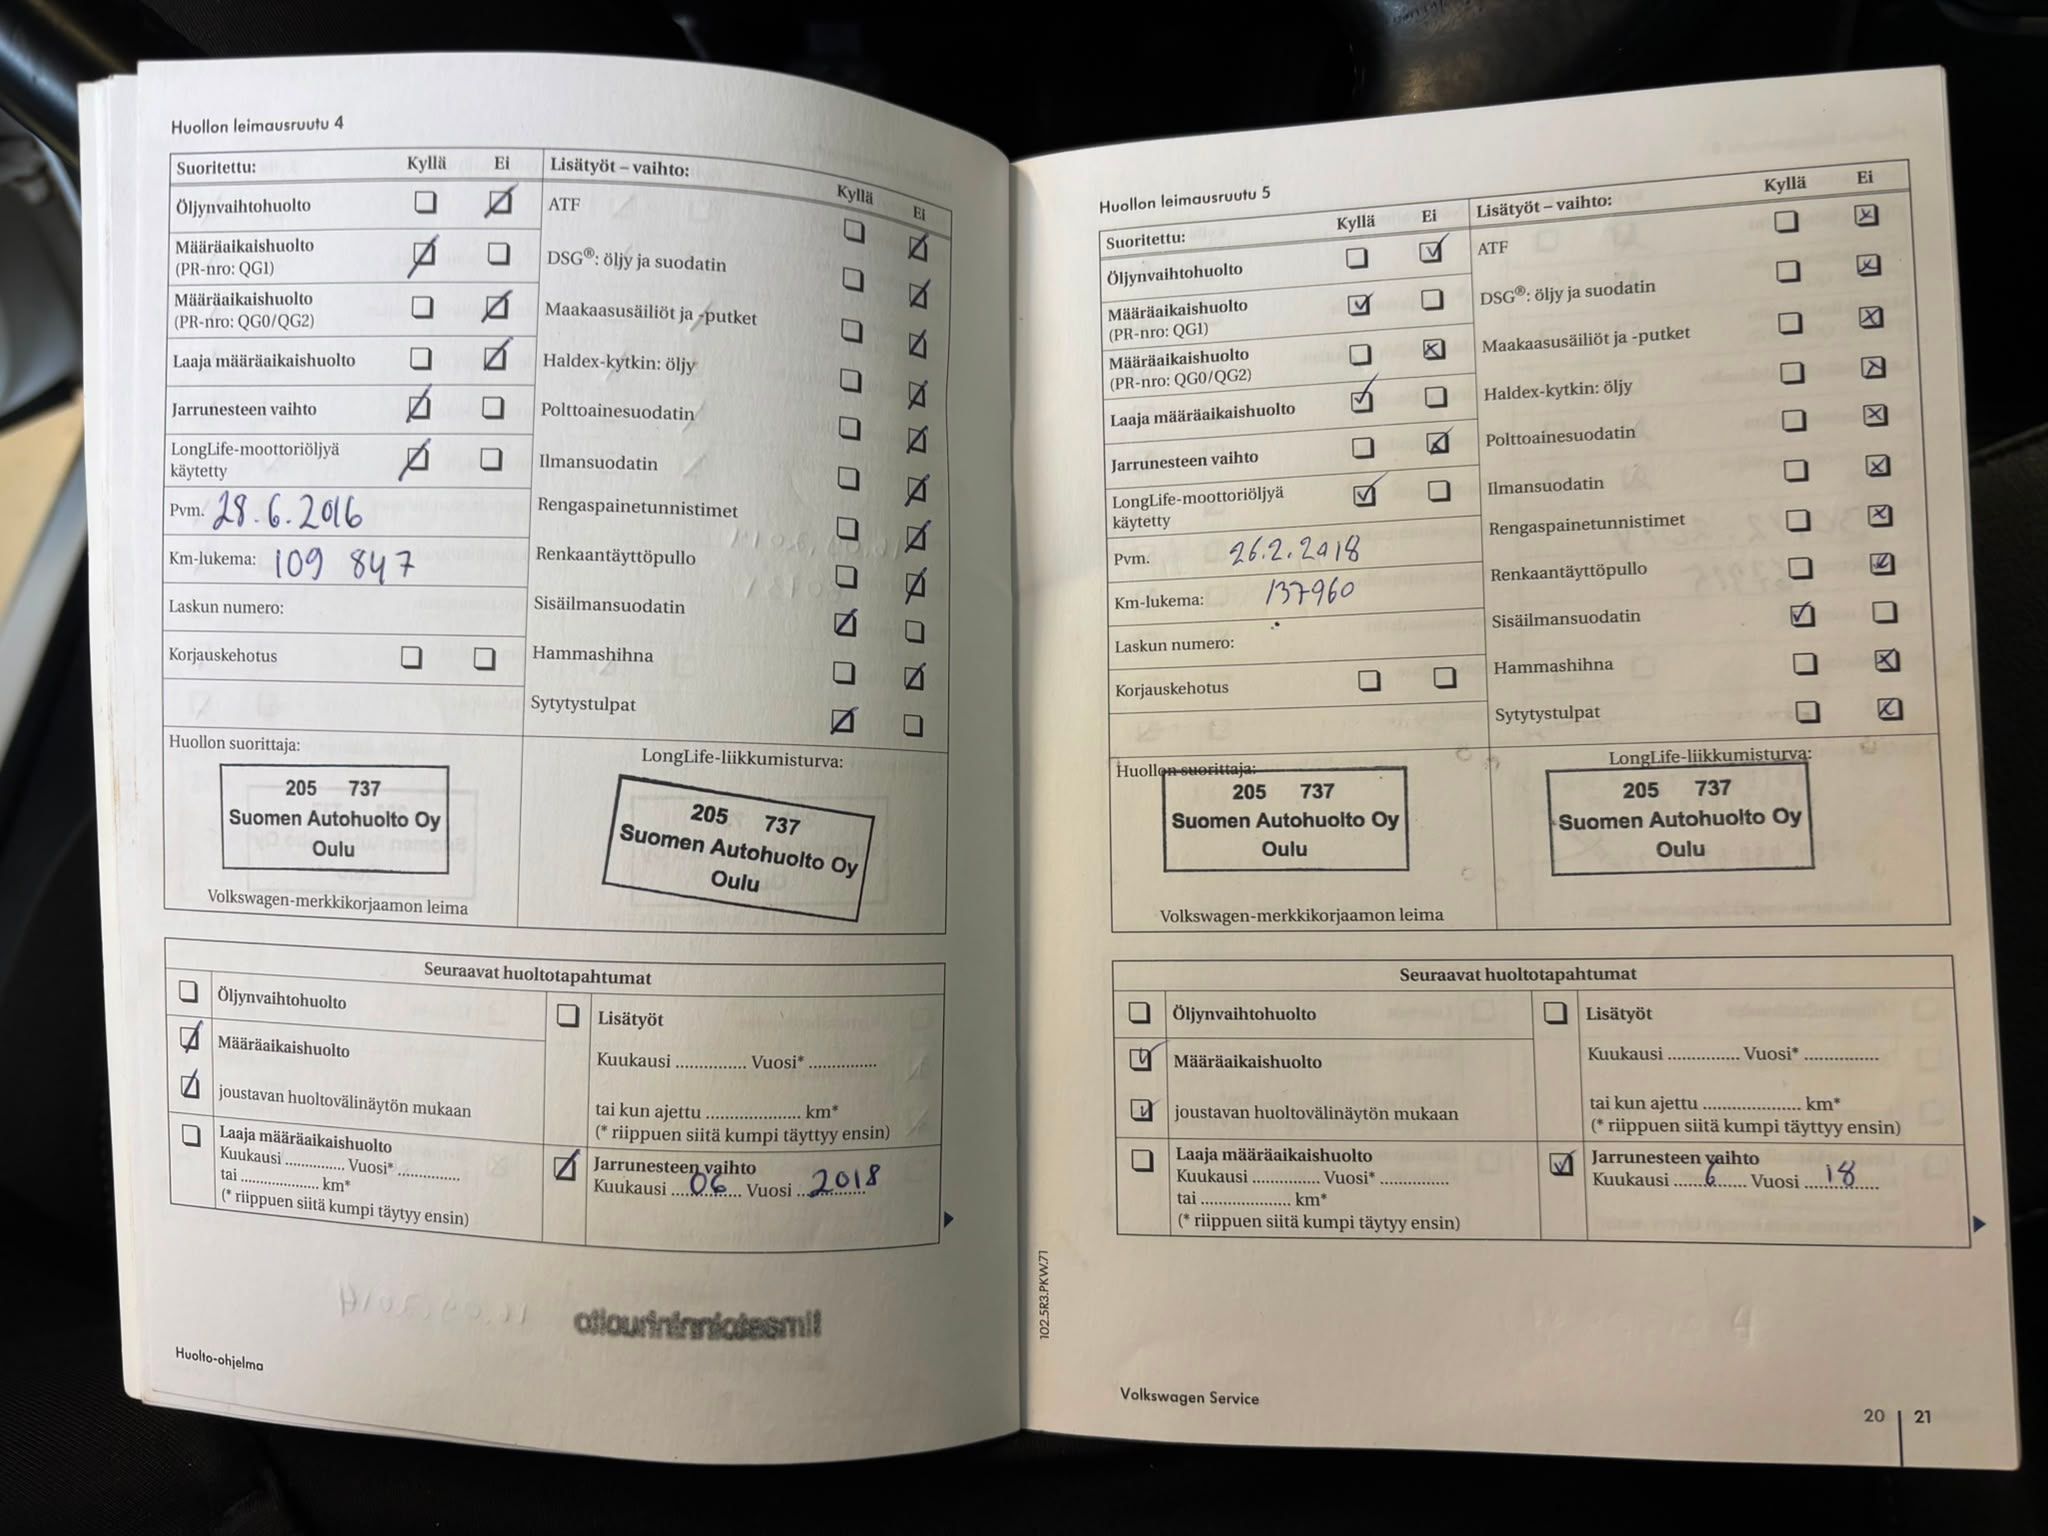 Huollon leimausruutu 4
Suoritettu: Kyllä Ei
Öljynvaihtohuolto
Määräaikaishuolto
(PR-nro: QG1)
Määräaikaishuolto
(PR-nro: QG0/QG2)
Laaja määräaikaishuolto
Jarrunesteen vaihto
LongLife-moottoriöljyä
käytetty
Pvm. 28.6.2016
Km-lukema: 109 847
Laskun numero:
Korjauskehotus
Lisätyöt – vaihto: Kyllä Ei
ATF
DSG®: öljy ja suodatin
Maakaasusäiliöt ja -putket
Haldex-kytkin: öljy
Polttoainesuodatin
Ilmansuodatin
Rengaspainetunnistimet
Renkaantäyttöpullo
Sisäilmansuodatin
Hammashihna
Sytytystulpat
Huollon suorittaja:
205 737
Suomen Autohuolto Oy
Oulu
Volkswagen-merkkikorjaamon leima
LongLife-liikkumisturva:
205 737
Suomen Autohuolto Oy
Oulu
Seuraavat huoltotapahtumat
Öljynvaihtohuolto
Määräaikaishuolto
joustavan huoltovälinäytön mukaan
Laaja määräaikaishuolto
Kuukausi .............. Vuosi* ..............
tai .................... km*
(* riippuen siitä kumpi täytyy ensin)
Lisätyöt
Kuukausi ............... Vuosi* ...............
tai kun ajettu .................... km*
(* riippuen siitä kumpi täyttyy ensin)
Jarrunesteen vaihto
Kuukausi 06 Vuosi 2018
Huolto-ohjelma
Huollon leimausruutu 5
Suoritettu: Kyllä Ei
Öljynvaihtohuolto
Määräaikaishuolto
(PR-nro: QG1)
Määräaikaishuolto
(PR-nro: QG0/QG2)
Laaja määräaikaishuolto
Jarrunesteen vaihto
LongLife-moottoriöljyä
käytetty
Pvm. 26.2.2018
Km-lukema: 137960
Laskun numero:
Korjauskehotus
Lisätyöt – vaihto: Kyllä Ei
ATF
DSG®: öljy ja suodatin
Maakaasusäiliöt ja -putket
Haldex-kytkin: öljy
Polttoainesuodatin
Ilmansuodatin
Rengaspainetunnistimet
Renkaantäyttöpullo
Sisäilmansuodatin
Hammashihna
Sytytystulpat
Huollon suorittaja:
205 737
Suomen Autohuolto Oy
Oulu
Volkswagen-merkkikorjaamon leima
LongLife-liikkumisturva:
205 737
Suomen Autohuolto Oy
Oulu
Seuraavat huoltotapahtumat
Öljynvaihtohuolto
Määräaikaishuolto
joustavan huoltovälinäytön mukaan
Laaja määräaikaishuolto
Kuukausi .............. Vuosi* ..............
tai .................... km*
(* riippuen siitä kumpi täytyy ensin)
Lisätyöt
Kuukausi ............... Vuosi* ...............
tai kun ajettu .................... km*
(* riippuen siitä kumpi täyttyy ensin)
Jarrunesteen vaihto
Kuukausi 6 Vuosi 18
102.5R3.PKW.71
Volkswagen Service
20 | 21